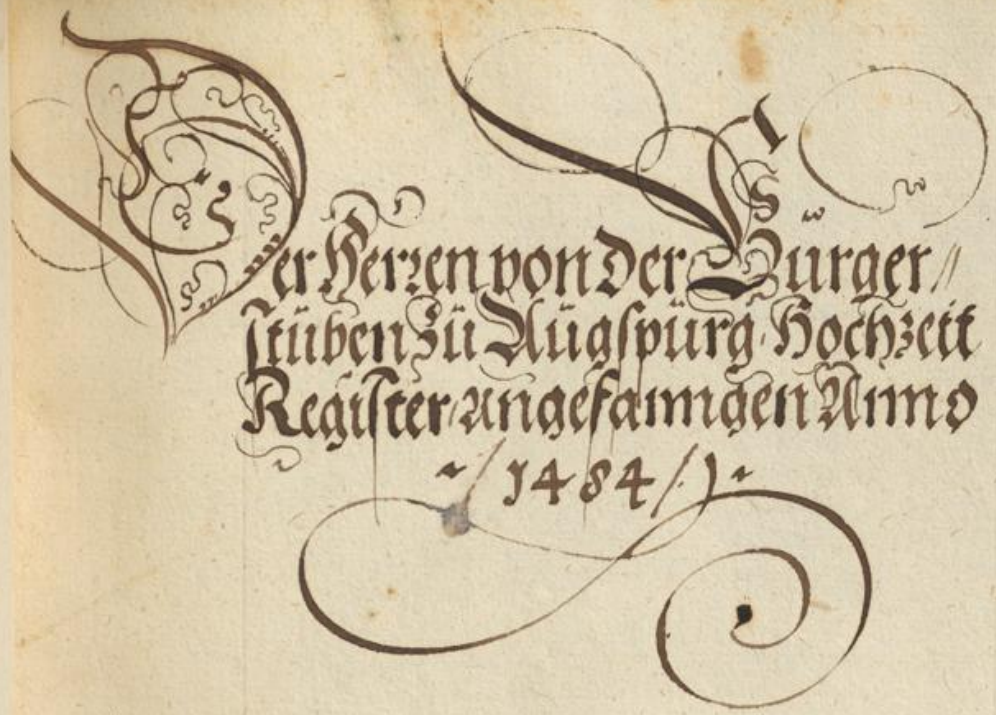 Der Herren von der Bürger //
stüben Zü Aügspürg Hochzeit
Register, angefanngen Anno
1484